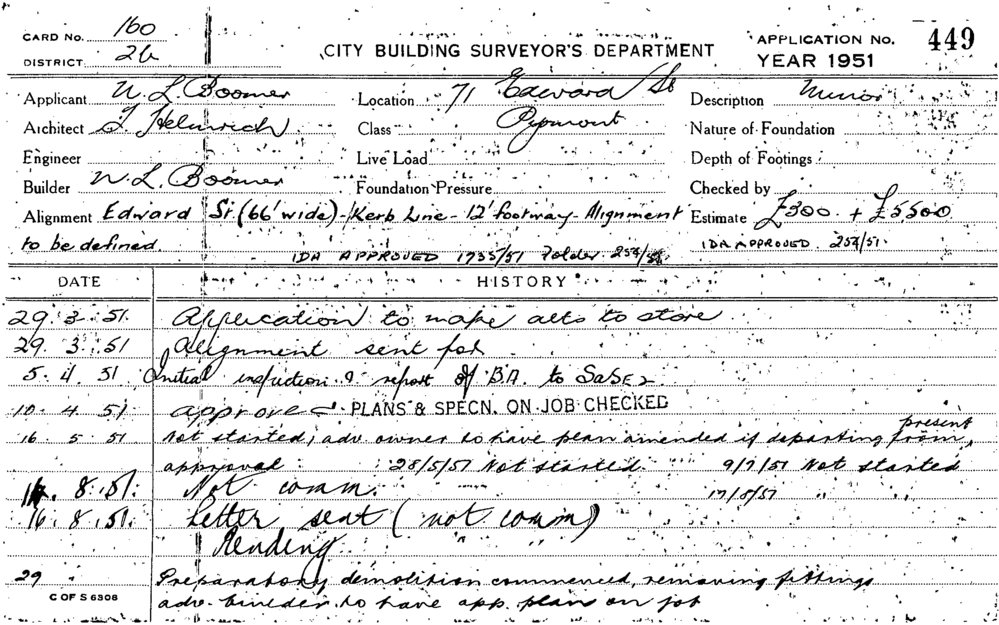 CARD No. 160
DISTRICT 26
CITY BUILDING SURVEYOR'S DEPARTMENT
APPLICATION No. 449
YEAR 1951
Applicant W L Boomer
Location 71 Edward St
Description Minor
Architect J Helmrich
Class Pyrmont
Nature of Foundation
Engineer
Live Load
Depth of Footings
Builder W. L. Boomer
Foundation Pressure
Checked by
Alignment Edward St (66' wide) - Kerb Line - 12' footway - Alignment
Estimate £300 + £5500
to be defined
IDA APPROVED 1735/51 Folder 254/51
IDA APPROVED 254/51.
DATE HISTORY
29. 3. 51. Application to make alts to store
29. 3. 51 Alignment sent for
5. 4. 51 Initial inspection & report of B.A. to
10. 4. 51 approved PLANS & SPECN. ON JOB CHECKED
16 5 51 Not started, adv. owner to have plan amended if departing from present
approval 28/5/51 Not started 9/7/51 Not started
8. 51. Not comm. 17/8/51 " "
16. 8. 51. Letter sent (not comm)
Pending
29 Preparatory demolition commenced, removing fittings
C OF S 6308
adv. builder to have app. plans on job